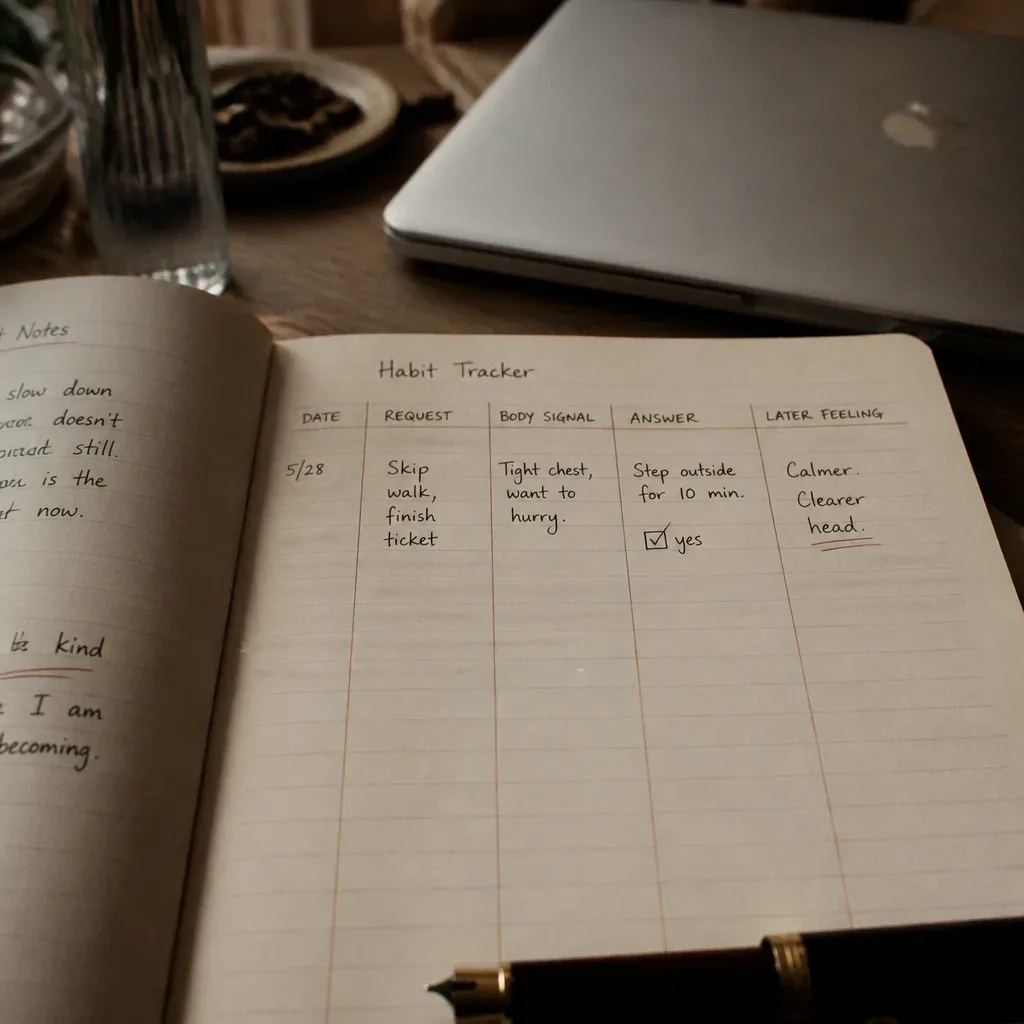 Notes
slow down
doesn't
still.
is the
now.
kind
I am
becoming.
Habit Tracker
DATE REQUEST BODY SIGNAL ANSWER LATER FEELING
5/28 Skip Tight chest, Step outside Calmer.
walk, want to for 10 min. Clearer
finish hurry. head.
ticket yes